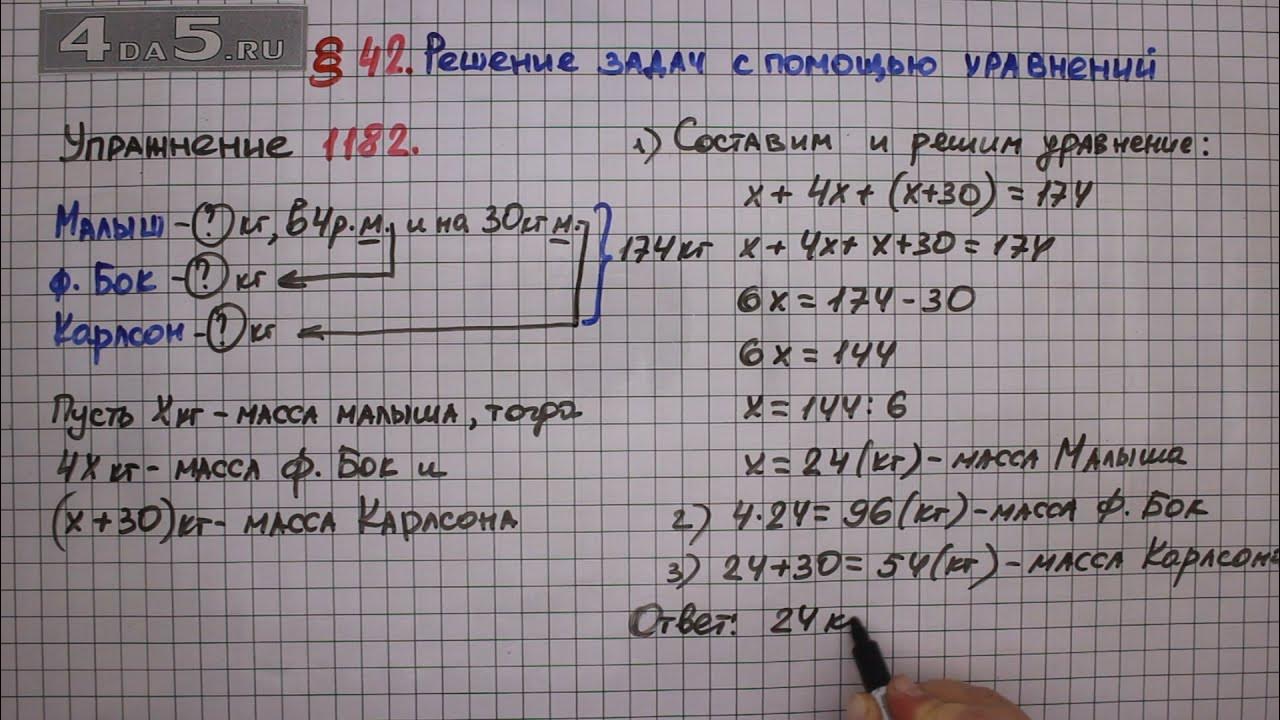 4DA5.RU
§ 42. Решение задач с помощью уравнений
Упражнение 1182.
Малыш - ? кг, в 4 р. м. и на 30 кг м.
ф. Бок - ? кг
Карлсон - ? кг
174 кг
Пусть х кг - масса малыша, тогда
4х кг - масса ф. Бок и
(х+30) кг - масса Карлсона
1) Составим и решим уравнение:
х + 4х + (х+30) = 174
х + 4х + х + 30 = 174
6х = 174 - 30
6х = 144
х = 144 : 6
х = 24 (кг) - масса Малыша
2) 4·24 = 96 (кг) - масса ф. Бок
3) 24+30 = 54 (кг) - масса Карлсона
Ответ: 24 к